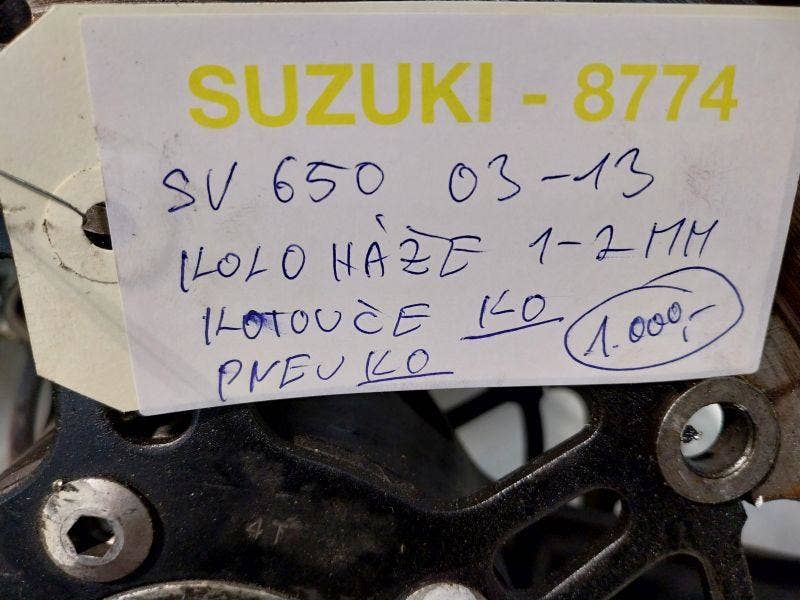 SUZUKI - 8774
SV 650 03-13
KOLO HÁŽE 1-2 MM
KOTOUČE KO
1.000,-
PNEU KO
4T